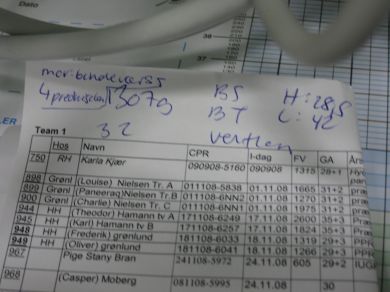 Dato
38
36
BS
H: 28,5
4 1307g
BT
L: 42
32
Team 1
Hos Navn CPR I-dag FV GA Års
750 RH Karla Kjær 090908-5160 090908 1315 28+1
898 Grønl (Louise) Nielsen Tr. A 011108-5838 01.11.08 1665 31+2
899 Grønl (Paneeraq) Nielsen Tr. B 011108-6NN2 01.11.08 1270 31+2
900 Grønl (Charlie) Nielsen Tr. C 011108-6NN1 01.11.08 1975 31+2
943 HH (Theodor) Hamann tv A 171108-6249 17.11.08 2600 35+4
945 HH (Karl) Hamann tv B 171108-6257 17.11.08 1824 35+4
948 HH (Frederik) grønlund 181108-6033 18.11.08 1319 29+3
949 HH (Oliver) grønlund 181108-6041 18.11.08 1266 29+3 PPR
967 Pige Stany Bran 241108-5972 24.11.08 605 29+2 IUG
968 (Casper) Moberg 081108-5995 24.11.08 30